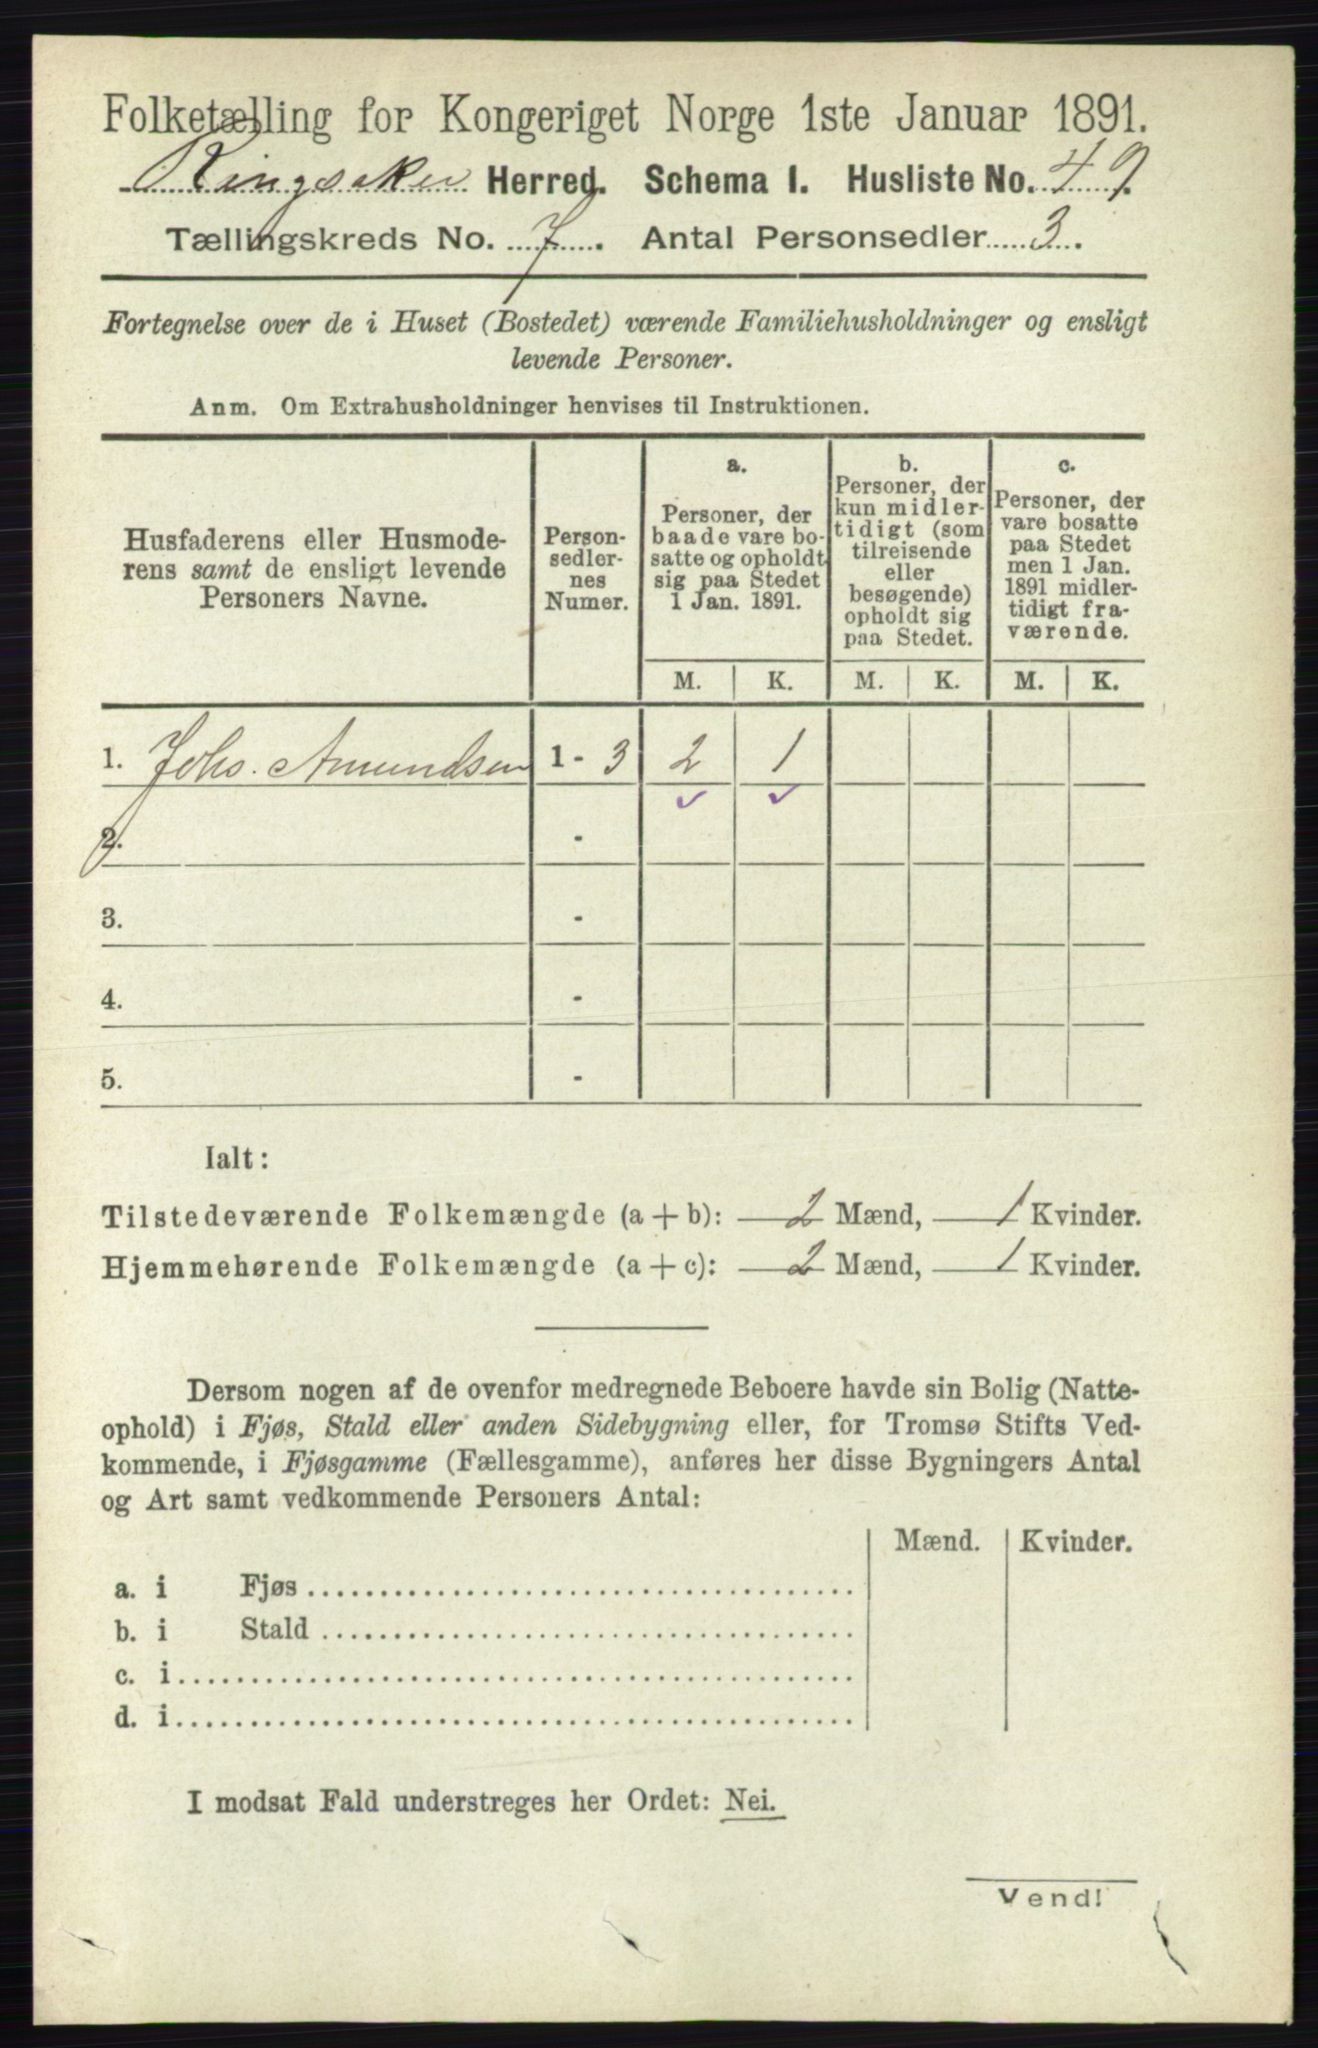 Folketælling for Kongeriget Norge 1ste Januar 1891.
Ringsaker Herred. Schema I. Husliste No. 49.
Tællingskreds No. 7. Antal Personsedler 3.
Fortegnelse over de i Huset (Bostedet) værende Familiehusholdninger og ensligt
levende Personer.
Anm. Om Extrahusholdninger henvises til Instruktionen.
Husfaderens eller Husmode-
rens samt de ensligt levende
Personers Navne.
Person-
sedler-
nes
Numer.
a.
Personer, der
baade vare bo-
satte og opholdt
sig paa Stedet
1 Jan. 1891.
b.
Personer, der
kun midler-
tidigt (som
tilreisende
eller
besøgende)
opholdt sig
paa Stedet.
c.
Personer, der
vare bosatte
paa Stedet
men 1 Jan.
1891 midler-
tidigt fra-
værende.
M. K. M. K. M. K.
1. Johs. Amundsen 1 - 3 2 1
2. -
3. -
4. -
5. -
Ialt:
Tilstedeværende Folkemængde (a + b): 2 Mænd, 1 Kvinder.
Hjemmehørende Folkemængde (a + c): 2 Mænd, 1 Kvinder.
Dersom nogen af de ovenfor medregnede Beboere havde sin Bolig (Natte-
ophold) i Fjøs, Stald eller anden Sidebygning eller, for Tromsø Stifts Ved-
kommende, i Fjøsgamme (Fællesgamme), anføres her disse Bygningers Antal
og Art samt vedkommende Personers Antal:
Mænd. Kvinder.
a. i Fjøs
b. i Stald
c. i
d. i
I modsat Fald understreges her Ordet: Nei.
Vend!